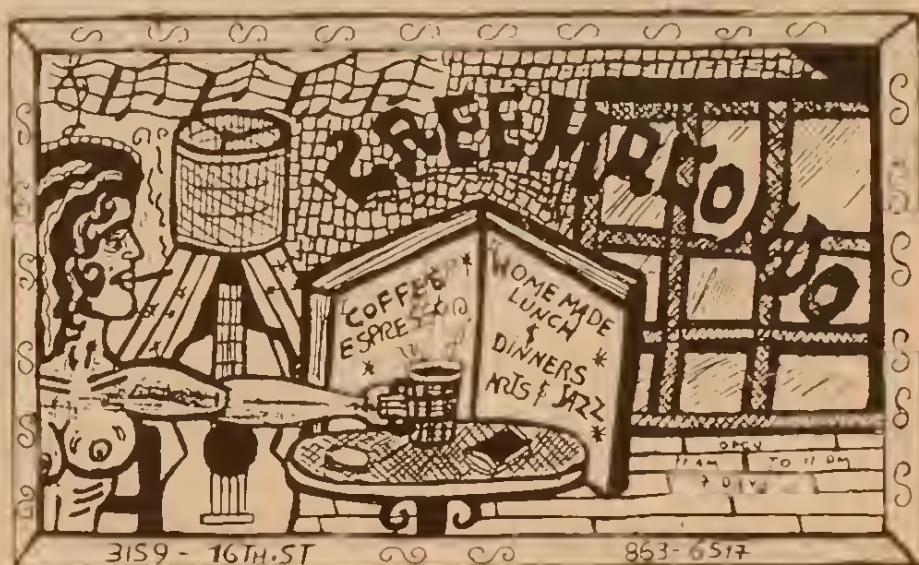 COFFEE
ESPRESSO
WOME MADE
LUNCH
&
DINNERS
ARTS & JAZZ
OPEN
11 AM TO 11 PM
7 DAYS
3159 - 16TH.ST 863-6517